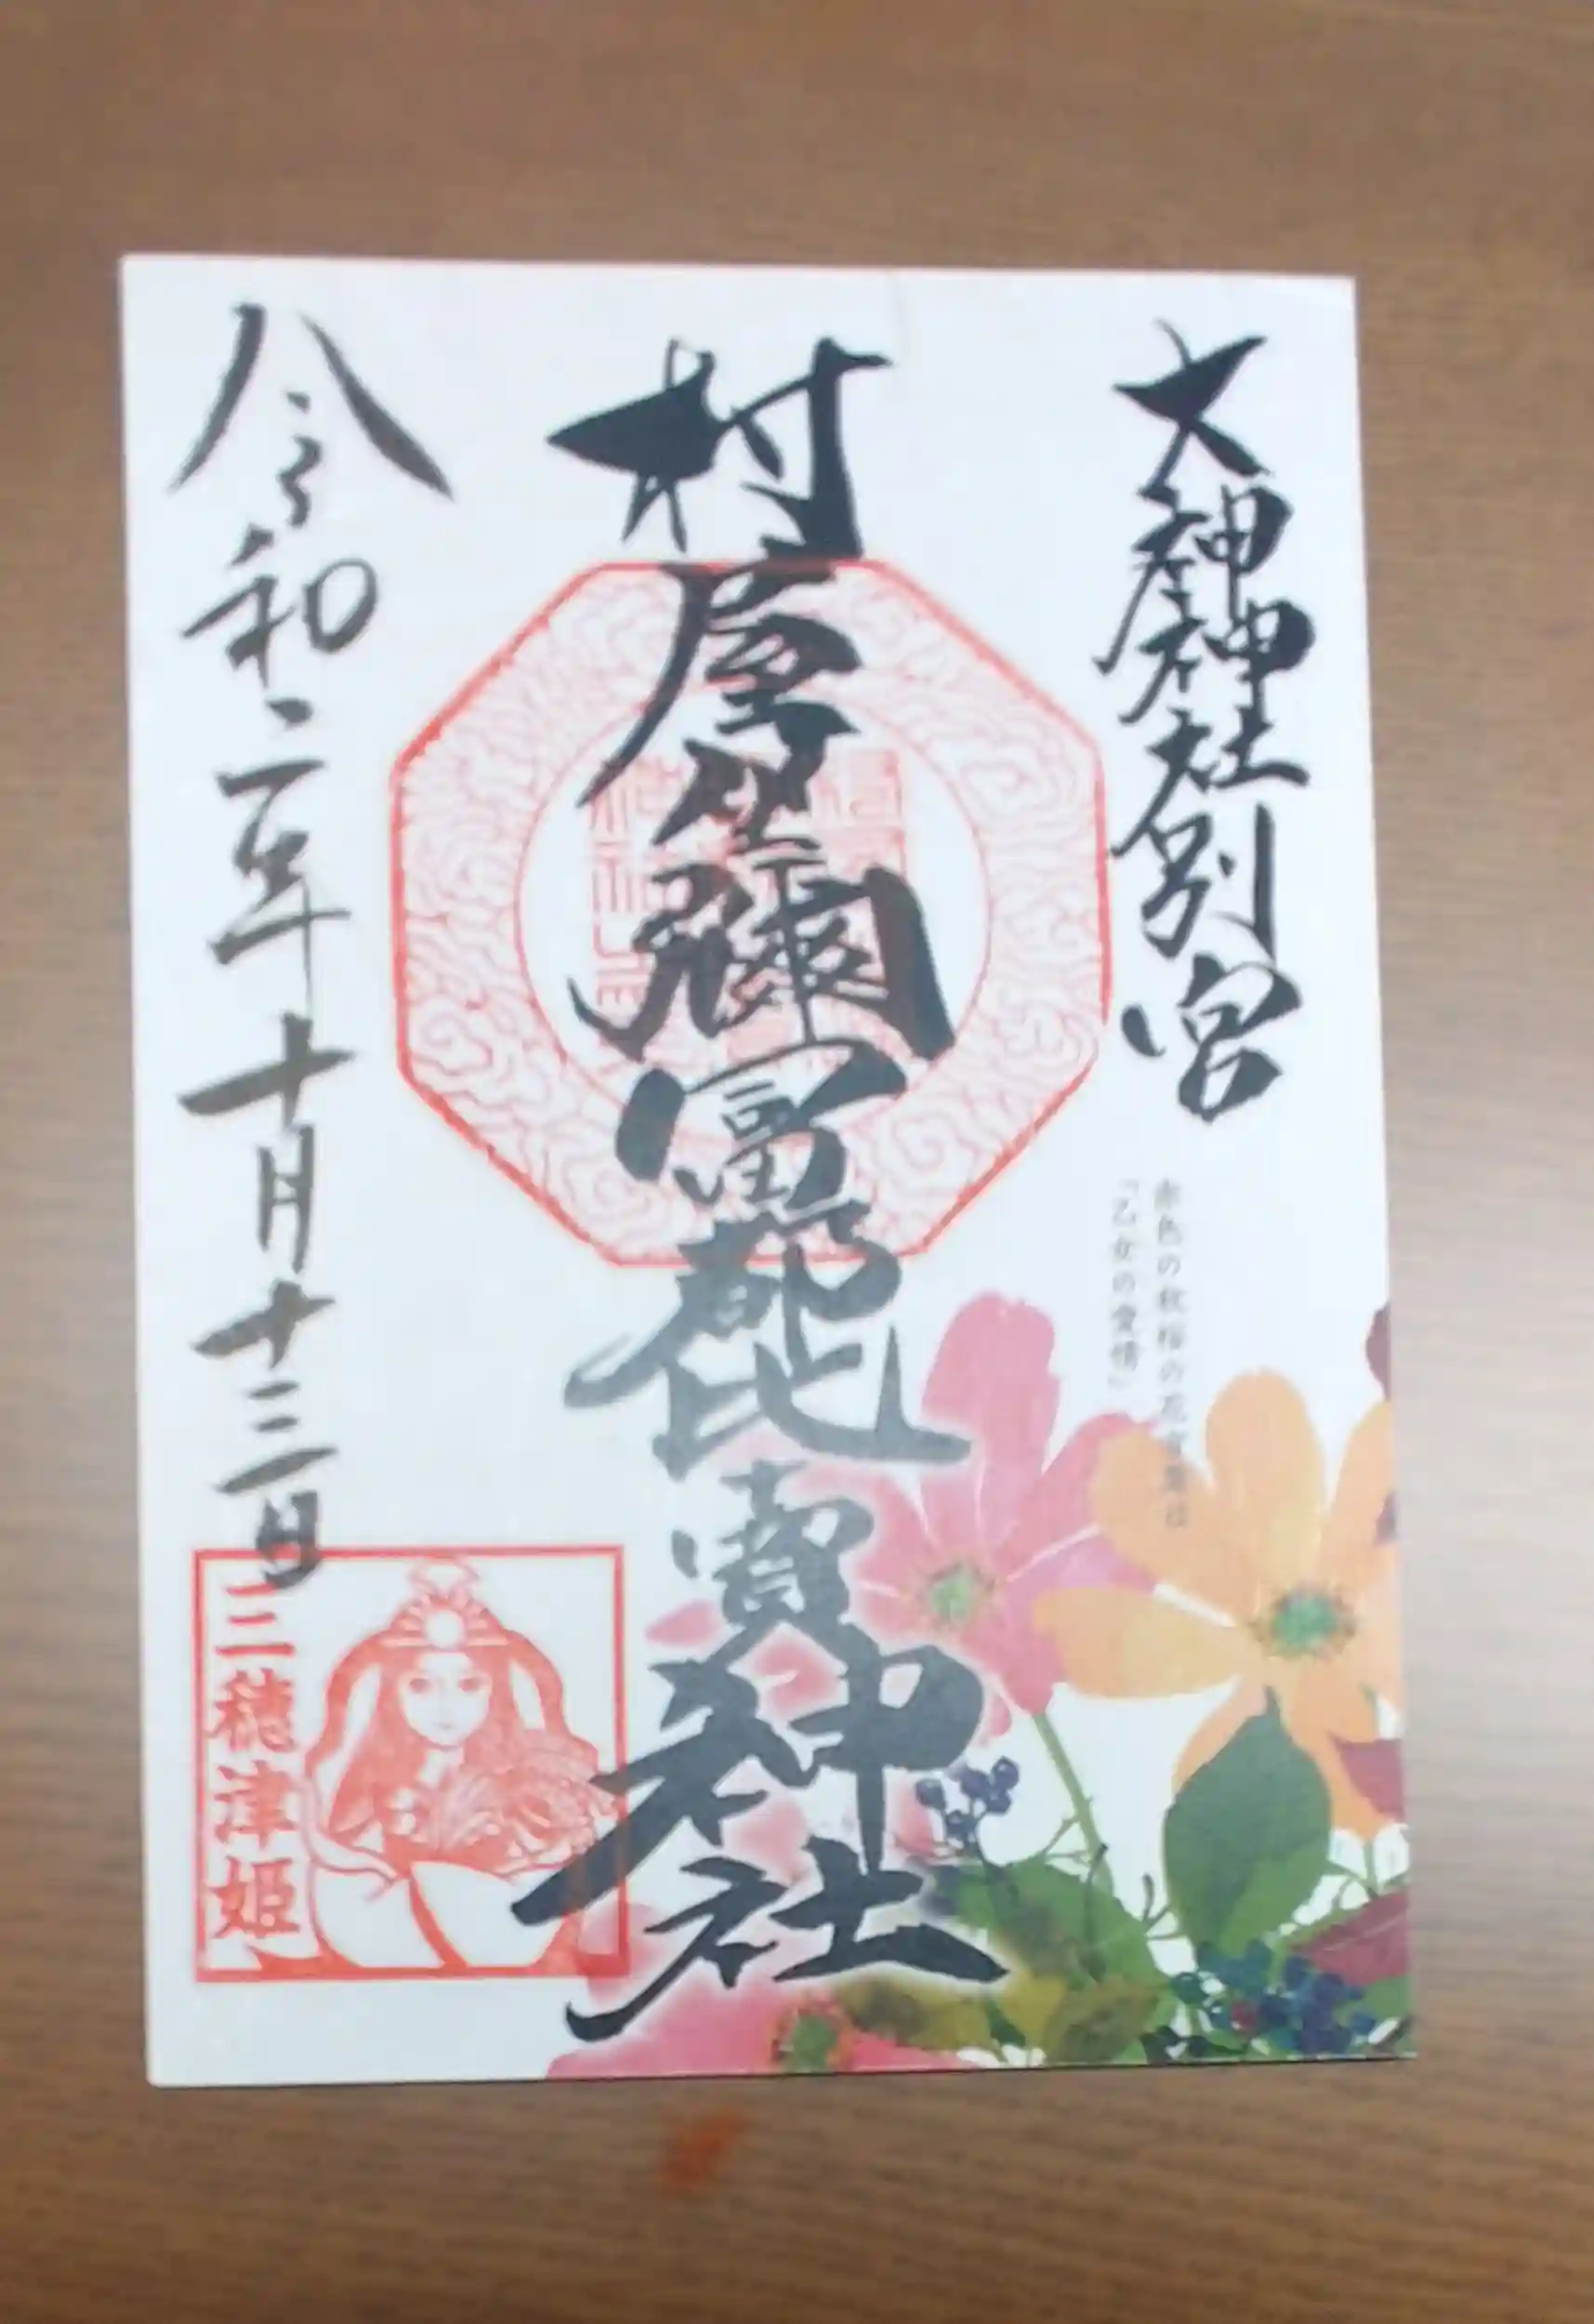 大神神社別宮
赤色の秋桜の花言葉は
「乙女の愛情」
村屋坐彌冨都比賣神社
令和二年十月十三日
三穂津姫